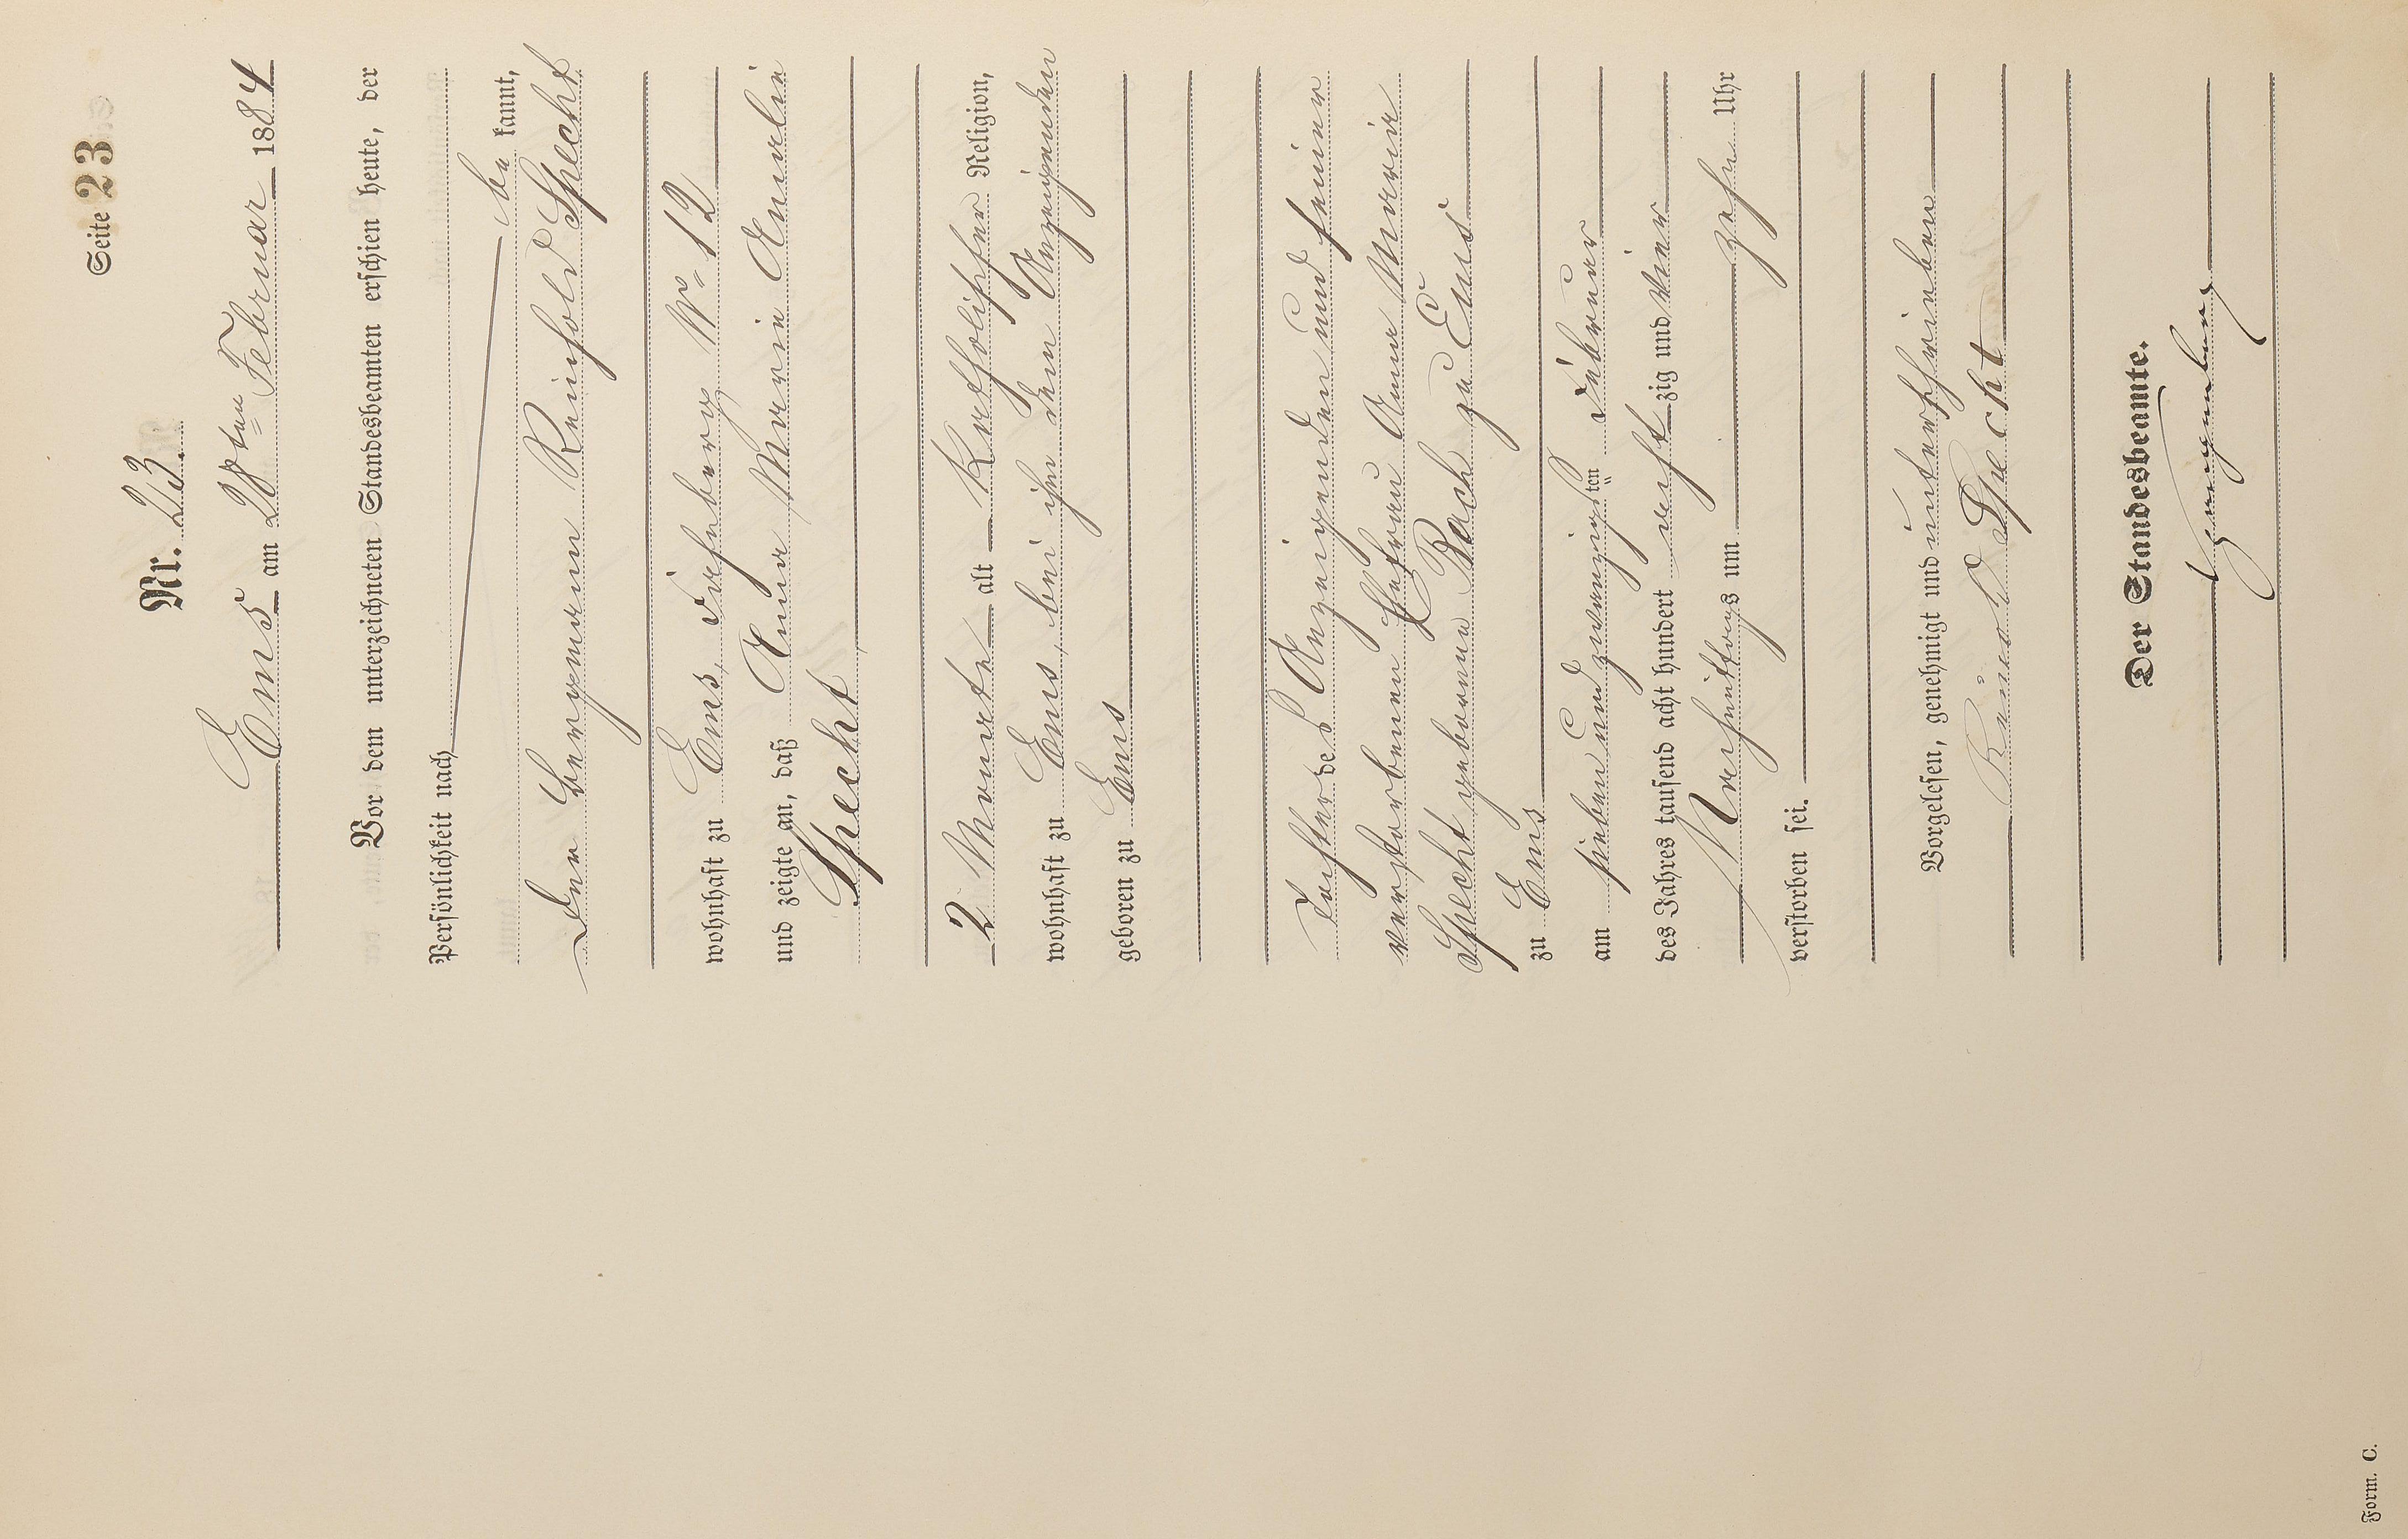 Seite 23
Nr. 23.
Ems am 28ten Februar 1884
Vor dem unterzeichneten Standesbeamten erschien heute, der
Persönlichkeit nach
be kannt,
der Bergmann Reinhold Specht
wohnhaft zu Ems, Fahnberg No 12
und zeigte an, daß Anna Maria Amalia
Specht
2 Monate alt Katholischer Religion,
wohnhaft zu Ems, bei ihm dem Anzeigenden
geboren zu Ems
Tochter des Anzeigenden und seiner
verstorbenen Ehefrau Anna Maria
Specht geborene Bach zu Ems
zu Ems
am sieben und zwanzigsten Februar
des Jahres tausend acht hundert acht zig und vier
Nachmittags um zehn Uhr
verstorben sei.
Vorgelesen, genehmigt und unterschrieben
Reinold Specht
Der Standesbeamte.
Form. C.